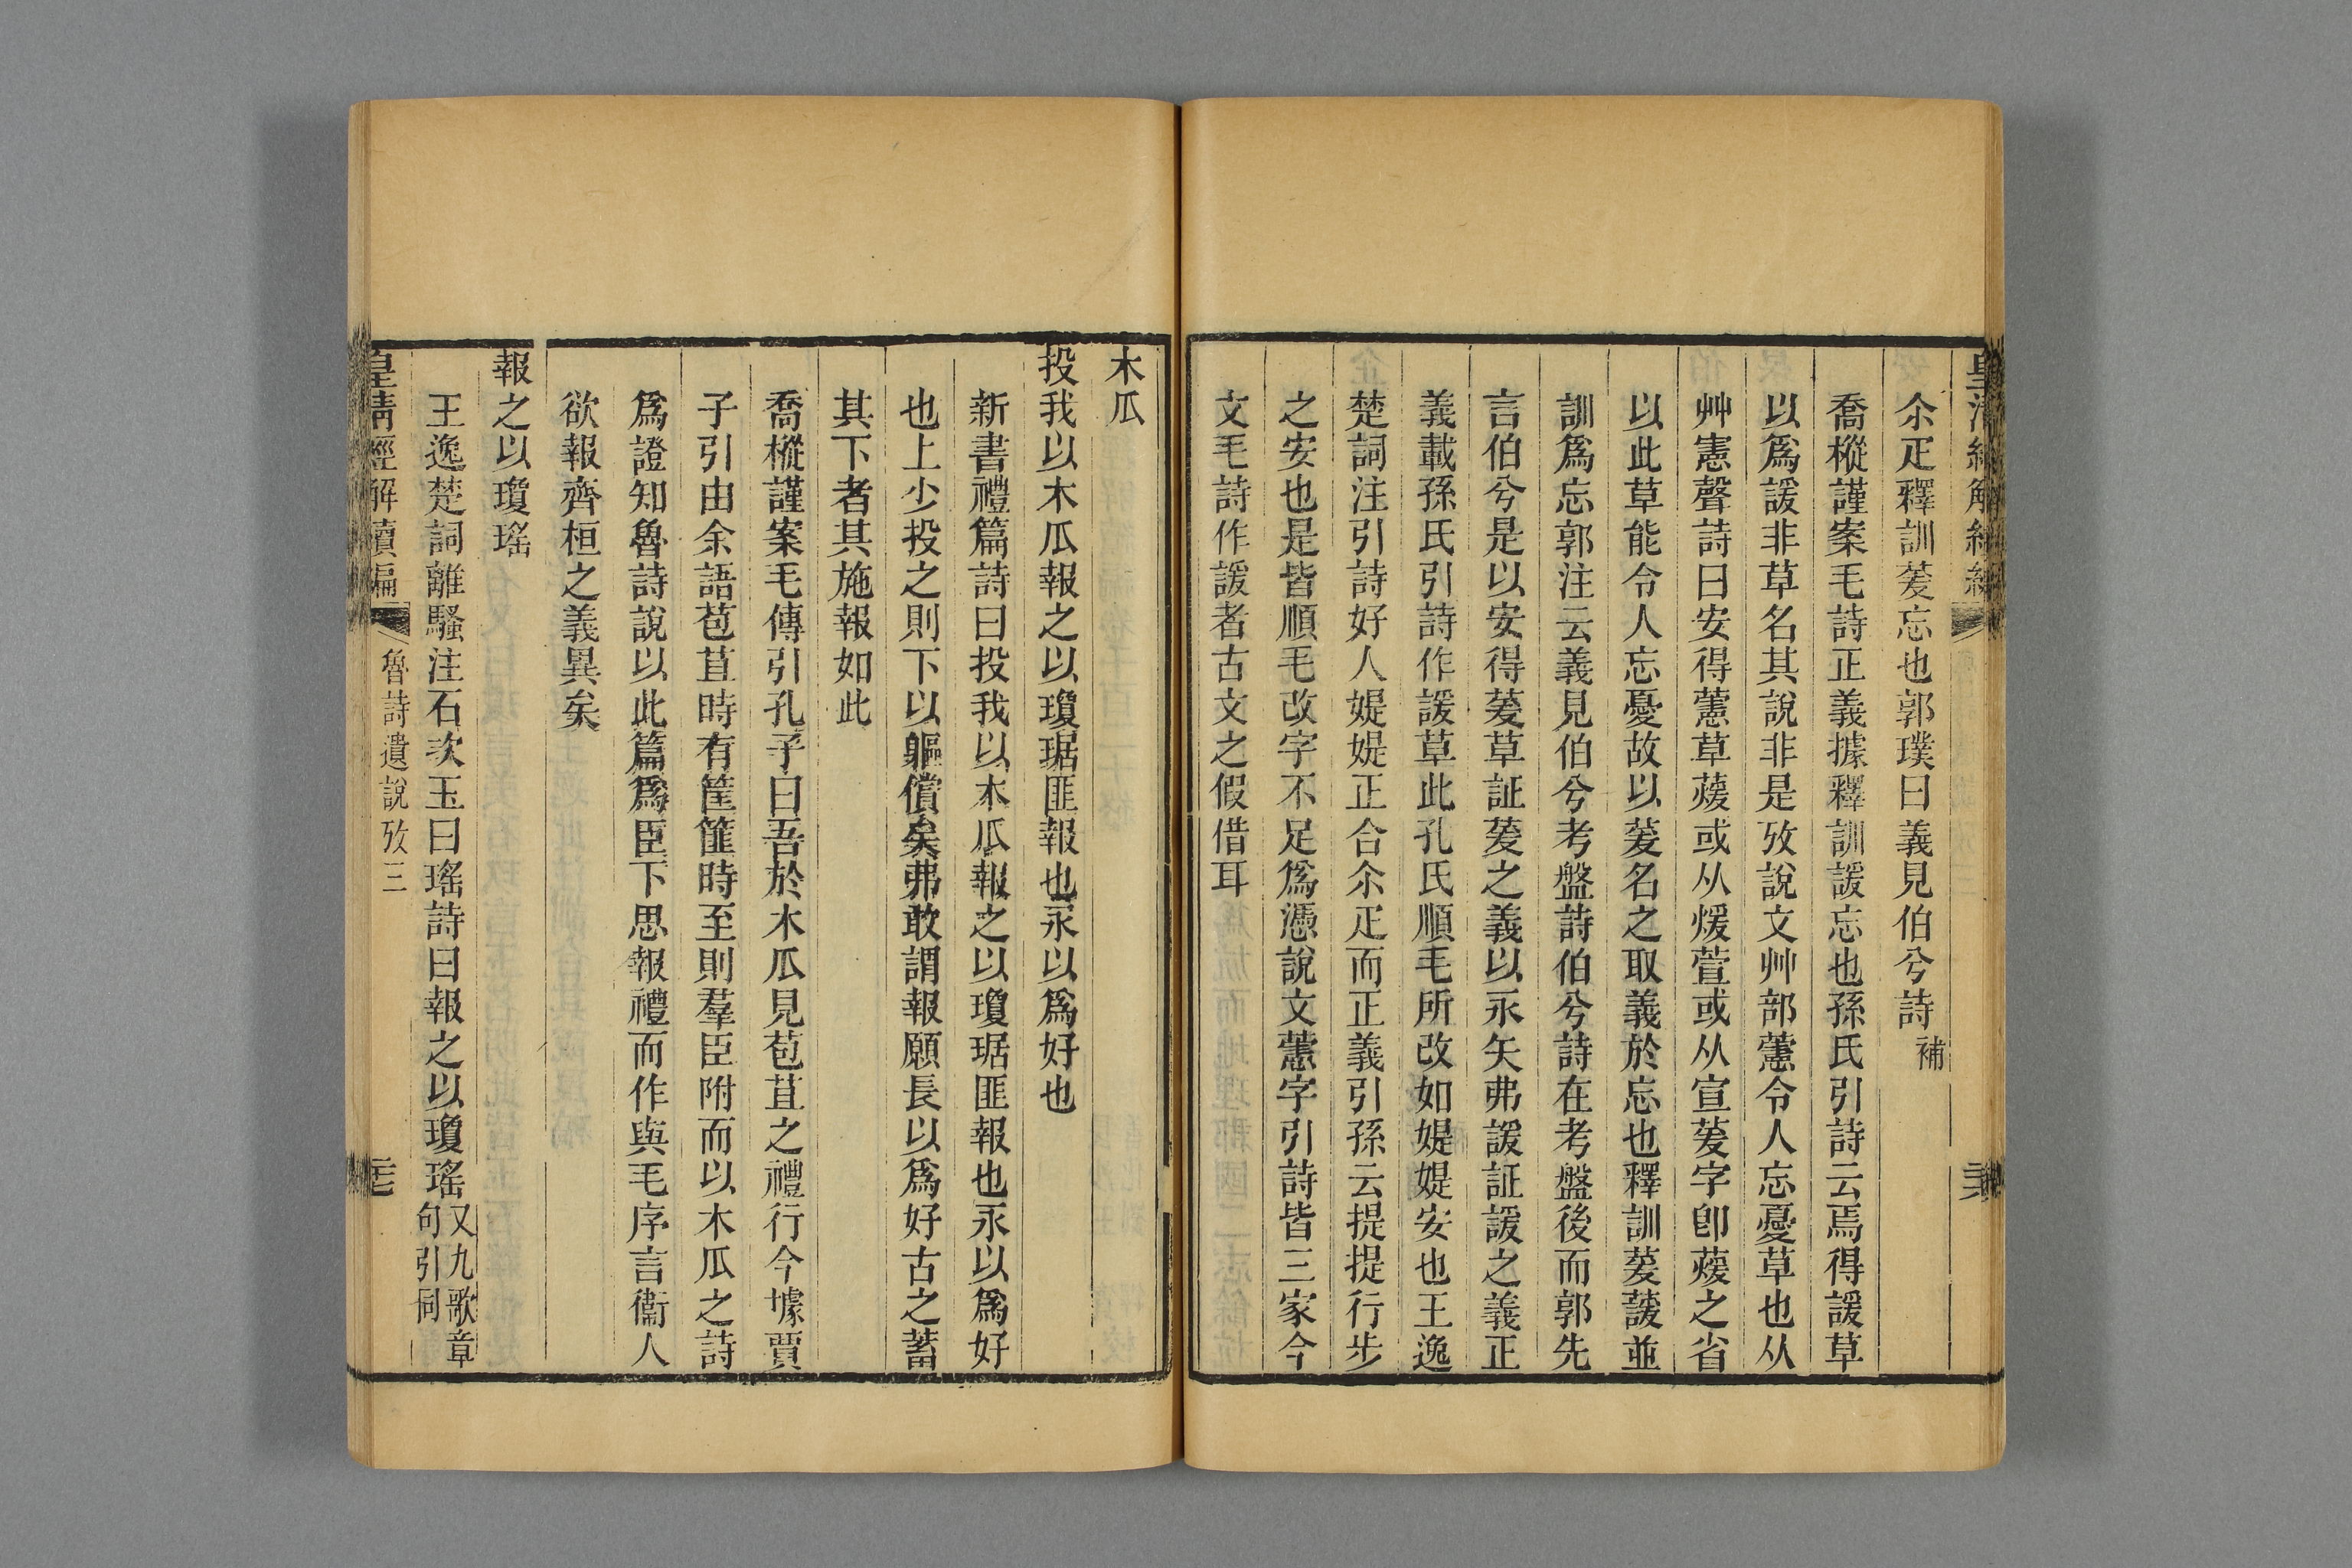 尒疋釋訓萲忘也郭璞曰義見伯兮詩補
喬樅謹案毛詩正義據釋訓諼忘也孫氏引詩云焉得諼草
以爲諼非草名其說非是攷說文艸部藼令人忘憂草也从
艸憲聲詩曰安得藼草蕿或从煖萱或从宣萲字卽蕿之省
以此草能令人忘憂故以萲名之取義於忘也釋訓萲蘐並
訓爲忘郭注云義見伯兮考盤詩伯兮詩在考盤後而郭先
言伯兮是以安得萲草証萲之義以永矢弗諼証諼之義正
義載孫氏引詩作諼草此孔氏順毛所改如媞媞安也王逸
楚詞注引詩好人媞媞正合尒疋而正義引孫云提提行步
之安也是皆順毛改字不足爲憑說文藼字引詩皆三家今
文毛詩作諼者古文之假借耳
木瓜
投我以木瓜報之以瓊琚匪報也永以爲好也
新書禮篇詩曰投我以木瓜報之以瓊琚匪報也永以爲好
也上少投之則下以軀償矣弗敢謂報願長以爲好古之蓄
其下者其施報如此
喬樅謹案毛傳引孔子曰吾於木瓜見苞苴之禮行今㩀賈
子引由余語苞苴時有筐篚時至則羣臣附而以木瓜之詩
爲證知魯詩說以此篇爲臣下思報禮而作與毛序言衞人
欲報齊桓之義異矣
報之以瓊瑤
王逸楚詞離騷注石次玉曰瑤詩曰報之以瓊瑤又九歌章句引同
皇清經解續編 魯詩遺說攷三